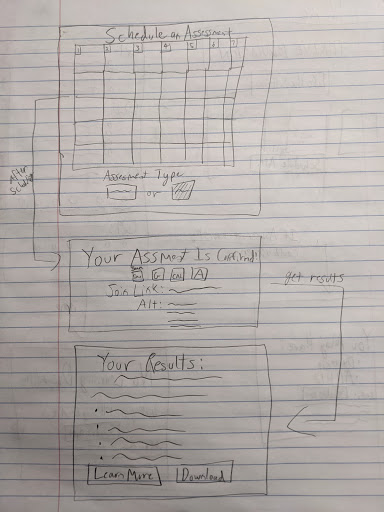 Schedule an Assessment
1 2 3 4 5 6 7
Assessment Type
or
After
Your Assment Is Confirmed!
Join Link:
Alt:
get results
Your Results:
Learn More Download